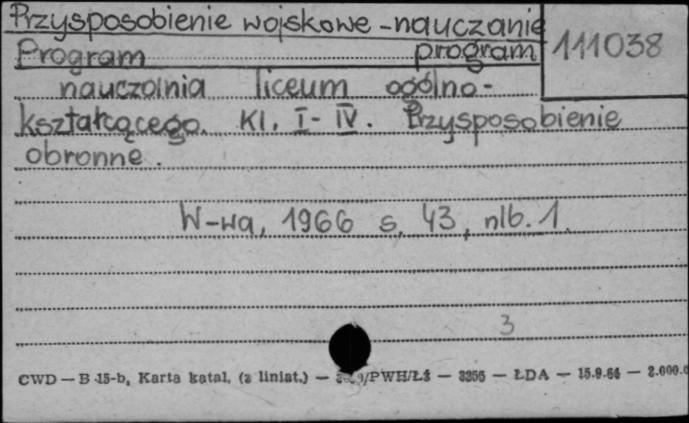 Przysposobienie wojskowe - nauczanie
Program program
111038
nauczania liceum ogólno-
kształcącego. Kl. I - IV. Przysposobienie
obronne.
W-wa, 1966 s. 43, nlb. 1.
3
CWD — B 15-b, Karta katal. (z liniat.) — /PWH/Łż — 3256 — ŁDA — 15.9.66 — 2.000.0